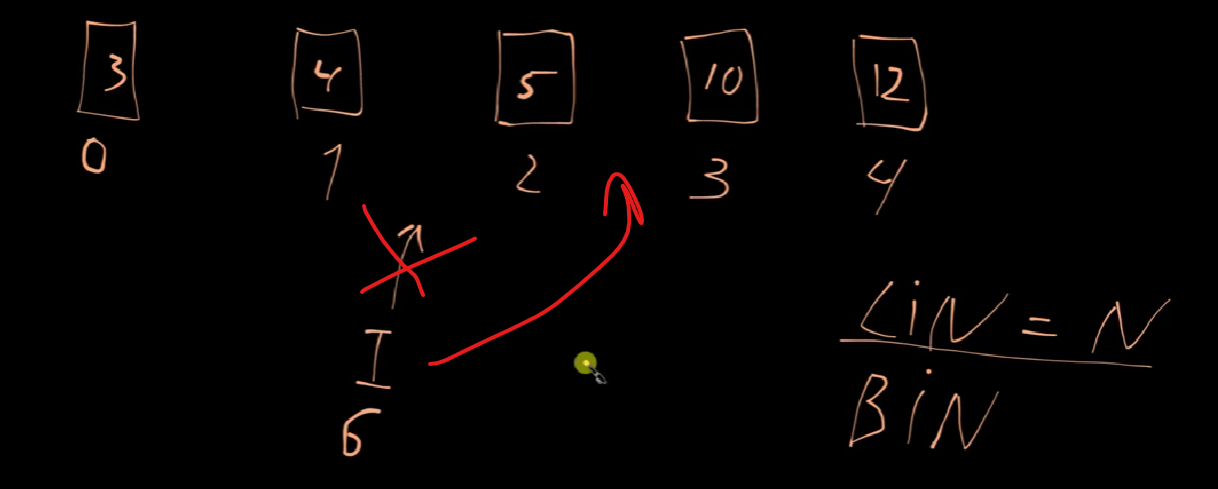 3 4 5 10 12
0 1 2 3 4
I
6
LiN = N
BiN